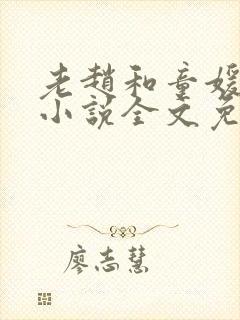 老趙和童媛
小說全文免
廖志慧